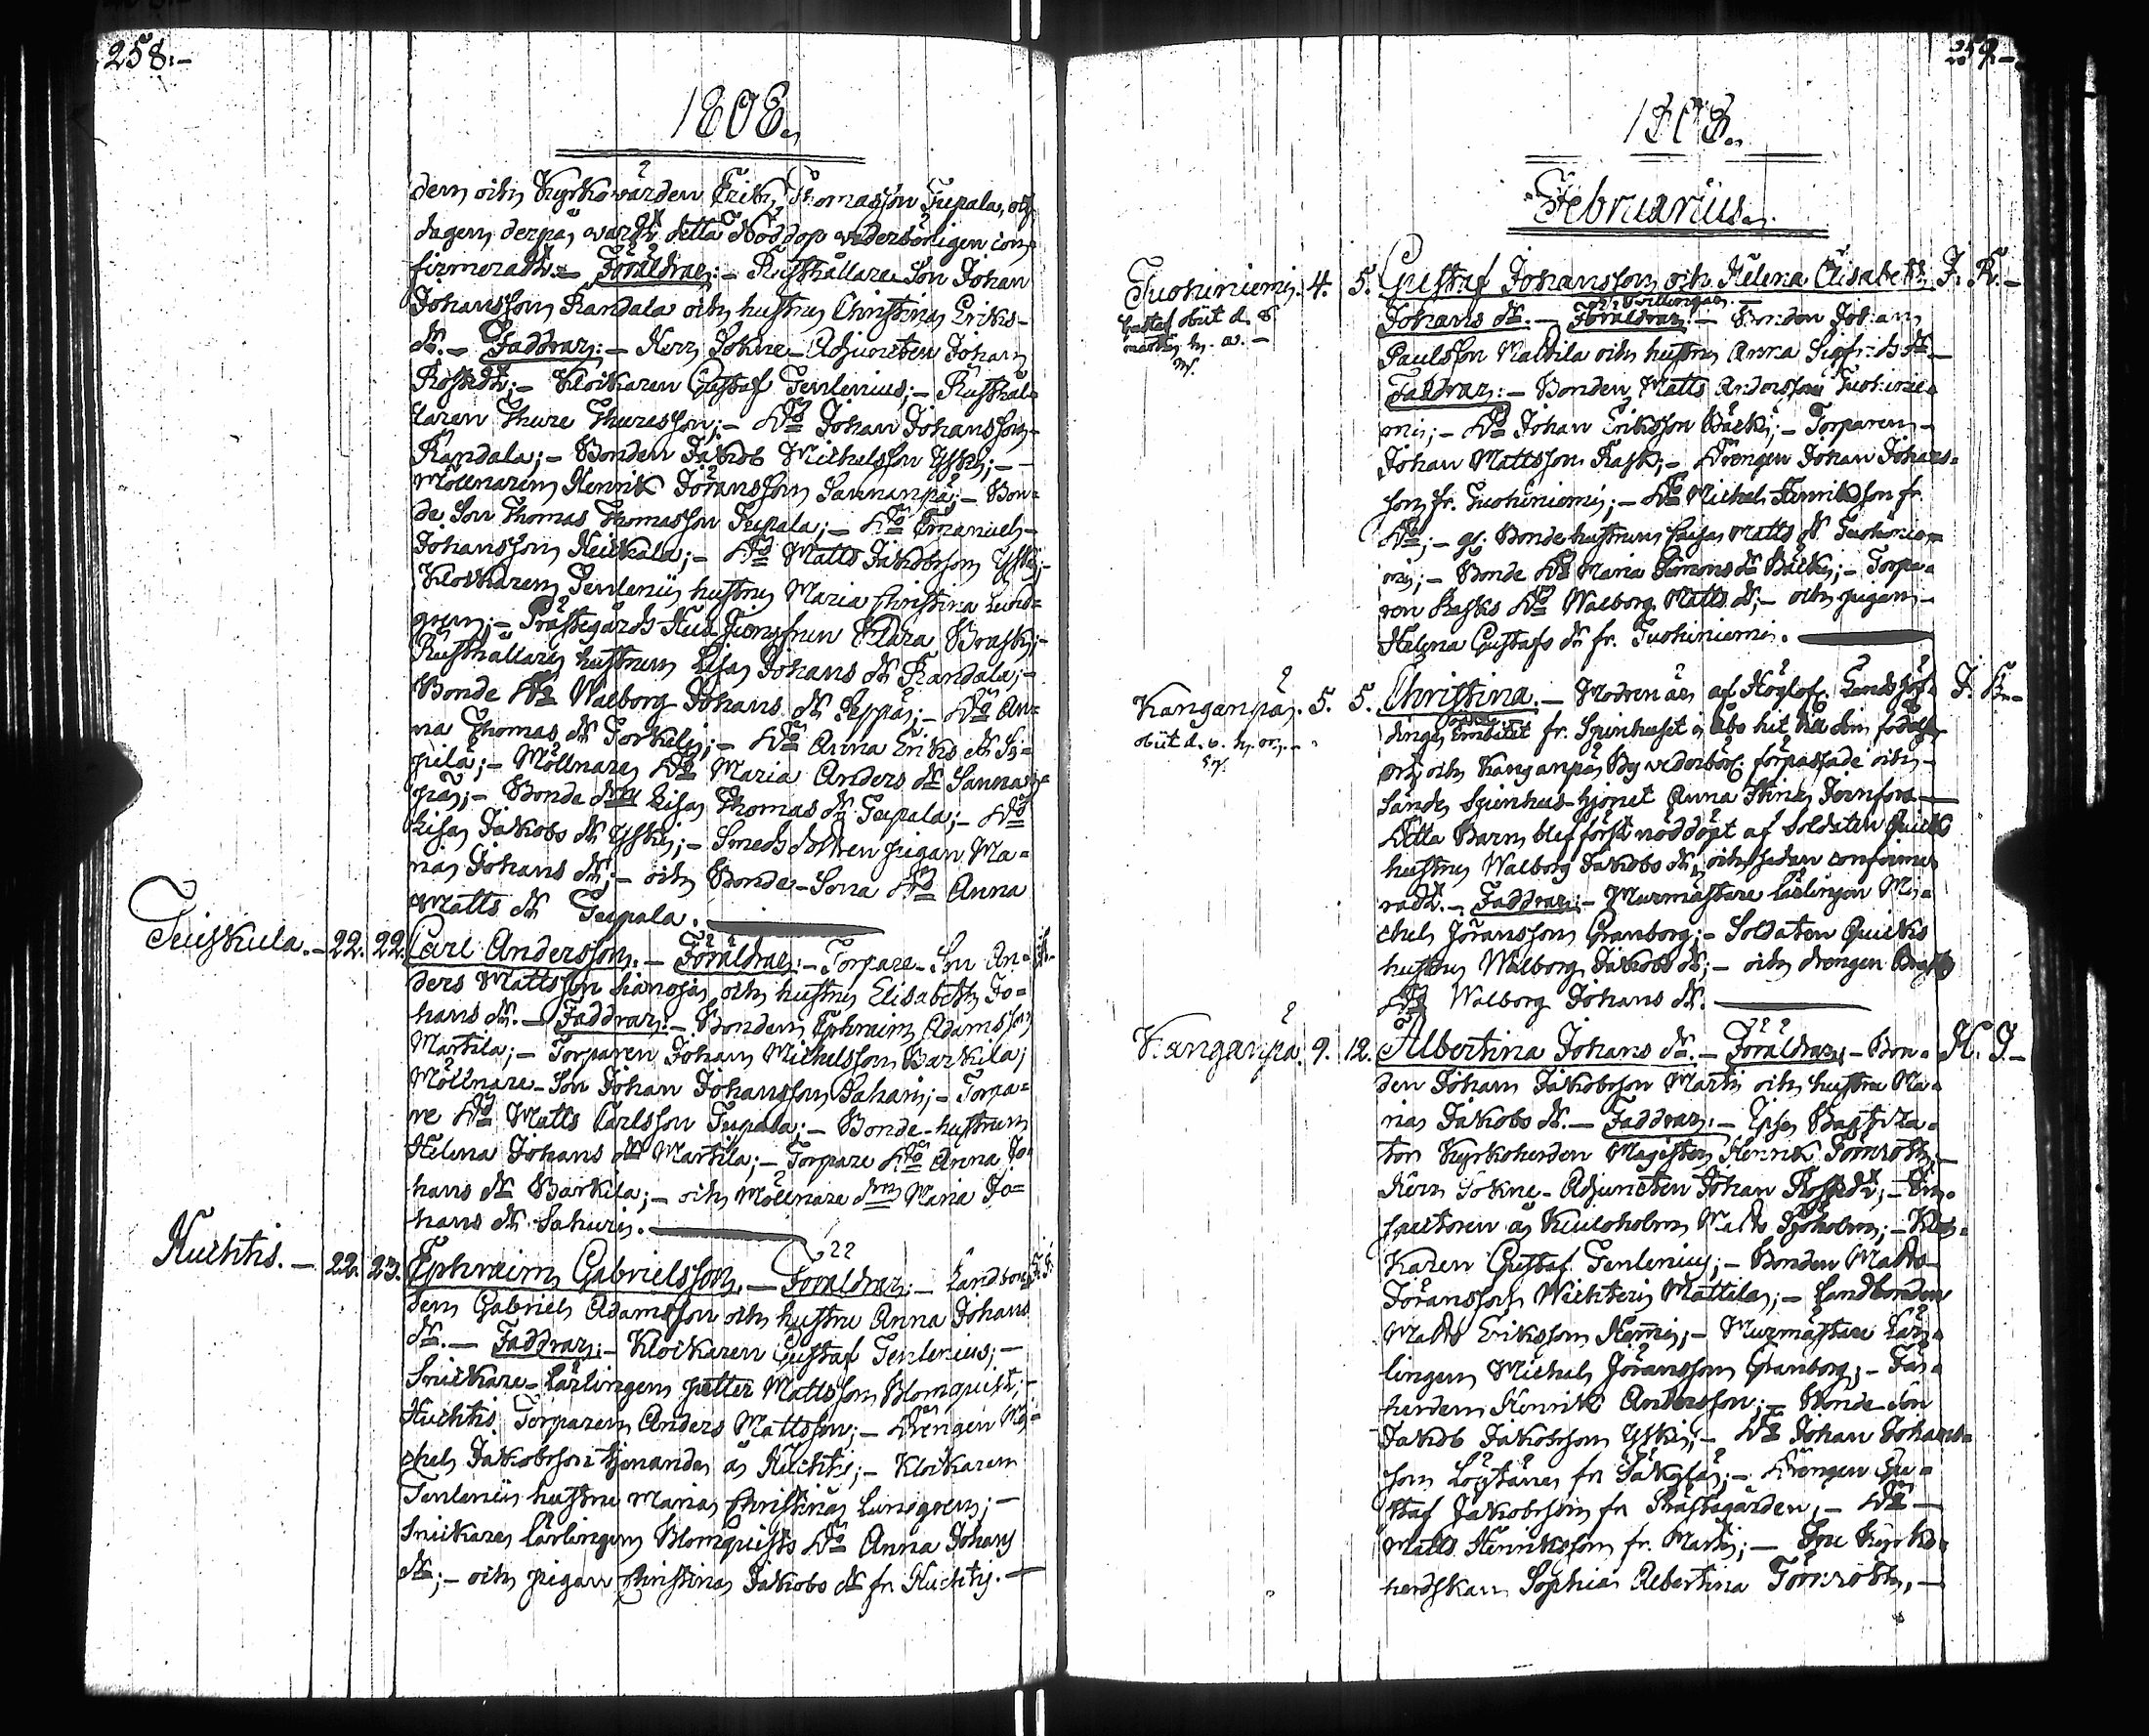 258:-
1808.
dem och Kyrkovärden Erik Thomasson Tupala, och
dagen derpå wardt detta Nöddop vederbörligen con-
firmeradt. Föräldrar:- Rusthållare Son Johan
Johansson Randala och hustru Christina Eriks-
dr.- Faddrar:- Herr Sokne-Adjuncten Johan
Rostedt;- Klockaren Gustaf Tenlenius;- Rusthål-
laren Thure Thuresson;- Do Johan Johansson
Randala;- Bonden Jakob Michelsson Yski;-
Möllnaren Henrik Jöransson Sannanpä;- Bon-
de Son Thomas Thomasson Tupala;- Do Emanuel
Johansson Heickala;- Do Matts Jakobsson Yski;-
Klockaren Tenlenii hustru Maria Christina Lund-
gren;- Prästegårds Jungfrun Klara Brask;-
Rusthållare hustrun Lisa Johans dr Randala;-
Bonde Do Walborg Johans dr Seppä;- Do An-
na Thomas dr Torkeli;- Do Anna Eriks dr
pilä;- Möllnare Do Maria Anders dr Sannan-
pä;- Bonde Lisa Thomas dr Tupala;- Do
Lisa Jakobs dr Yski;- Smedsdottren pigan Ma-
ria Johans dr;- och Bonde-Sona Do Anna
Matts dr Tupala.
Tuiskula.- 22. 22. Carl Andersson.- Föräldrar:- Torpare-Son An-
ders Mattsson och hustru Elisabeth Jo-
hans dr.- Faddrar:- Bonden Ephraim Adamsson
Martila;- Torparen Johan Michelsson Barkila;
Möllnare-Son Johan Johansson Sahari;- Torpa-
re Do Matts Carlsson Tupala;- Bonde-hustrun
Helena Johans dr Martila;- Torpare Do Anna Jo-
hans dr Barkila;- och Möllnare Maria Jo-
hans dr Sahari.
Huchtis.- 22. 23. Ephraim Gabrielsson.- Föräldrar:- Landbon- J. F.
den Gabriel Adamsson och hustru Anna Johans
dr.- Faddrar:- Klockaren Gustaf Tenlenius;-
Snickare-lärlingen petter Mattsson Blomquist;-
Huchtis Torparen Anders Mattsson;- Drengen Mi-
chel Jakobsson tjenandes å Huchtis;- Klockaren
Tenlenii hustru Maria Christina Lundgren;-
Snickare lärlingen Blomquists Do Anna Johans
dr;- och pigan Christina Jakobs dr fr. Huchtis.-
259.-
1808.
Februarius.
Tuohiniemi. 4. 5. Gustaf Johansson och Helena Elisabeth J. R.-
Gustaf obiit d. 8
martii h. a.-
Johans dr.- tvillingar.- Föräldrar:- Bonden Johan
Paulsson Mattila och hustru Anna Sigfrids dr-
Faddrar:- Bonden Matts Andersson Tuohinie-
mi;- Do Johan Eriksson Bäcki;- Torparen
Johan Mattsson Rask;- Drengen Johan Johans-
son fr. Tuohiniemi;- Do Michel Henriksson fr.
Do;- Bondehustrun Caisa Matts dr Tuohinie-
mi;- Bonde Do Maria Simons dr Bäcki;- Torpa-
ren Rasks Do Walborg Matts dr;- och pigan
Helena Gustafs dr fr. Tuohiniemi.
Kanganpä. 5. 5. Christina.- Modren är af Höglofl. Landshöf- J. R.-
obiit d. 6. h. m.-
dinge Embetet fr. Spinhuset i Åbo hit till sin födelse
ort och Kanganpä By vederbörl. förpassade och
sände Spinhus-hjonet Anna Stina Jernfors-
Detta Barn blef först nöddöpt af Soldaten Quicks
hustru Walborg Jakobs dr, och sedan confirme-
radt.- Faddrar:- Murmästare lärlingen Mi-
chel Jöransson Granborg;- Soldaten Quicks
hustru Walborg Jakobs dr;- och drengen
Do Walborg Johans dr.
Kanganpä. 9. 12. Albertina Johans dr.- Föräldrar:- Bon- H. T.-
den Johan Jakobsson Martti och hustru Ma-
ria Jakobs dr.- Faddrar:- Ipse Baptiza-
tor Kyrkoherden Magister Henrik Törnroth;-
Herr Sokne-Adjuncten Johan Rostedt;- In-
spectoren å Kiuloholm Matts Sjöholm;- Kloc-
karen Gustaf Tenlenius;- Bonden Matts
Jöransson Wichteri Mattila;- Landbonden
Matts Eriksson Nemi;- Murmästare lär-
lingen Michel Jöransson Granborg;- Får-
herden Henrik Andersson;- Bonde Son
Jakob Jakobsson Yski;- Do Johan Johans-
son Löytäne fr Säkylä;- Drengen Gu-
staf Jakobsson fr Prästgården;- Do-
Matts Henriksson fr. Martti;- Fru Kyrko-
herdskan Sophia Albertina Törnroth,-